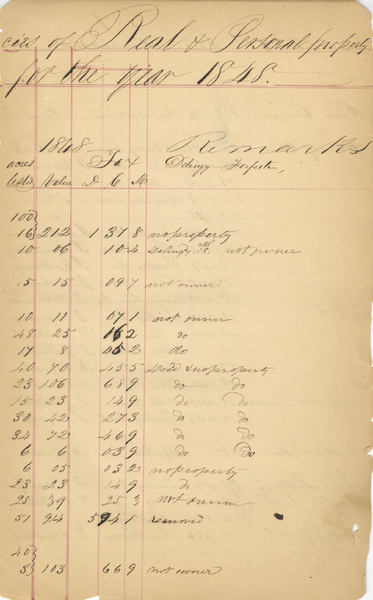 cies of Real & Personal property
for the year 1848.
1848 Tax Remarks
acres Value D. C M
100
16 212 1 37 8 no property
10 06 10 4 not owner
15 15 09 7 not owner
10 11 07 1 not owner
48 25 16 2 do
17 8 05 2 do
40 70 45 5 Sold & no property
23 106 68 9 do do
15 23 14 9 do do
30 42 27 3 do do
34 72 46 9 do do
6 6 03 9 do do
6 05 03 2 no property
23 23 14 9 do
28 39 25 3 not owner
51 94 5 94 8 removed
40
3 103 66 9 not owner